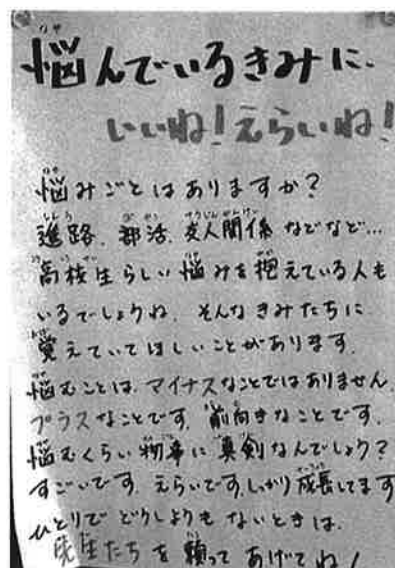 悩んでいるきみに.
いいね!えらいね!
悩みごとはありますか?
進路、部活、友人関係などなど…
高校生らしい悩みを抱えている人も
いるでしょうね、そんなきみたちに
覚えていてほしいことがあります。
悩むことは、マイナスなことではありません。
プラスなことです。前向きなことです。
悩むくらい物事に真剣なんでしょう?
すごいです。えらいです。しっかり成長してます
ひとりでどうしようもないときは、
先生たちを頼ってあげてね!